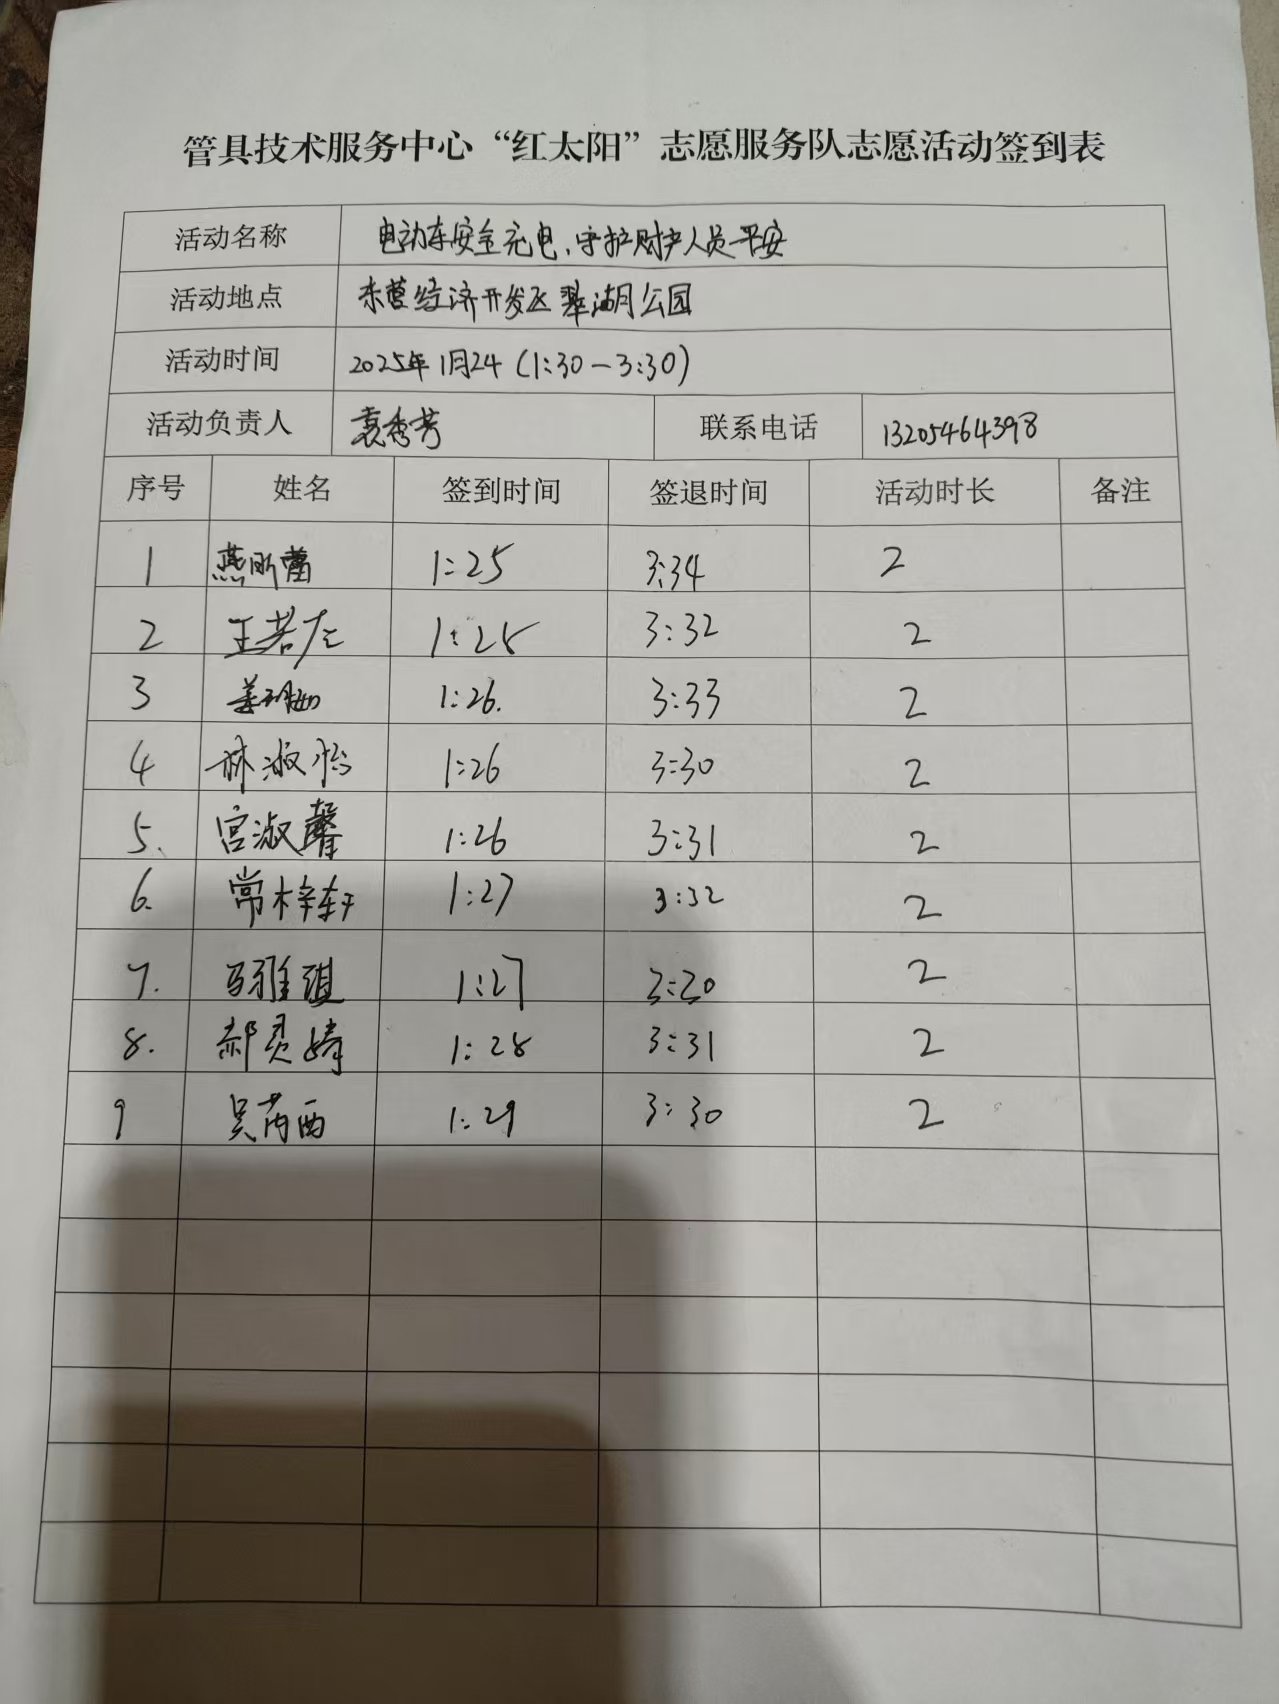 管具技术服务中心“红太阳”志愿服务队志愿活动签到表
活动名称 电动车安全充电、守护财产人员平安
活动地点 东营经济开发区 翠湖月公园
活动时间 2025年1月24（1:30-3:30）
活动负责人 袁秀芳 联系电话 13205464398
序号 姓名 签到时间 签退时间 活动时长 备注
1 燕昕蕾 1:25 3:34 2
2 王若 1:25 3:32 2
3 1:26. 3:33 2
4 林淑怡 1:26 3:30 2
5. 宫淑馨 1:26 3:31 2
6. 常梓轩 1:27 3:32 2
7. 马雅琪 1:27 3:30 2
8. 郝灵婧 1:28 3:31 2
9 吴芮西 1:29 3:30 2